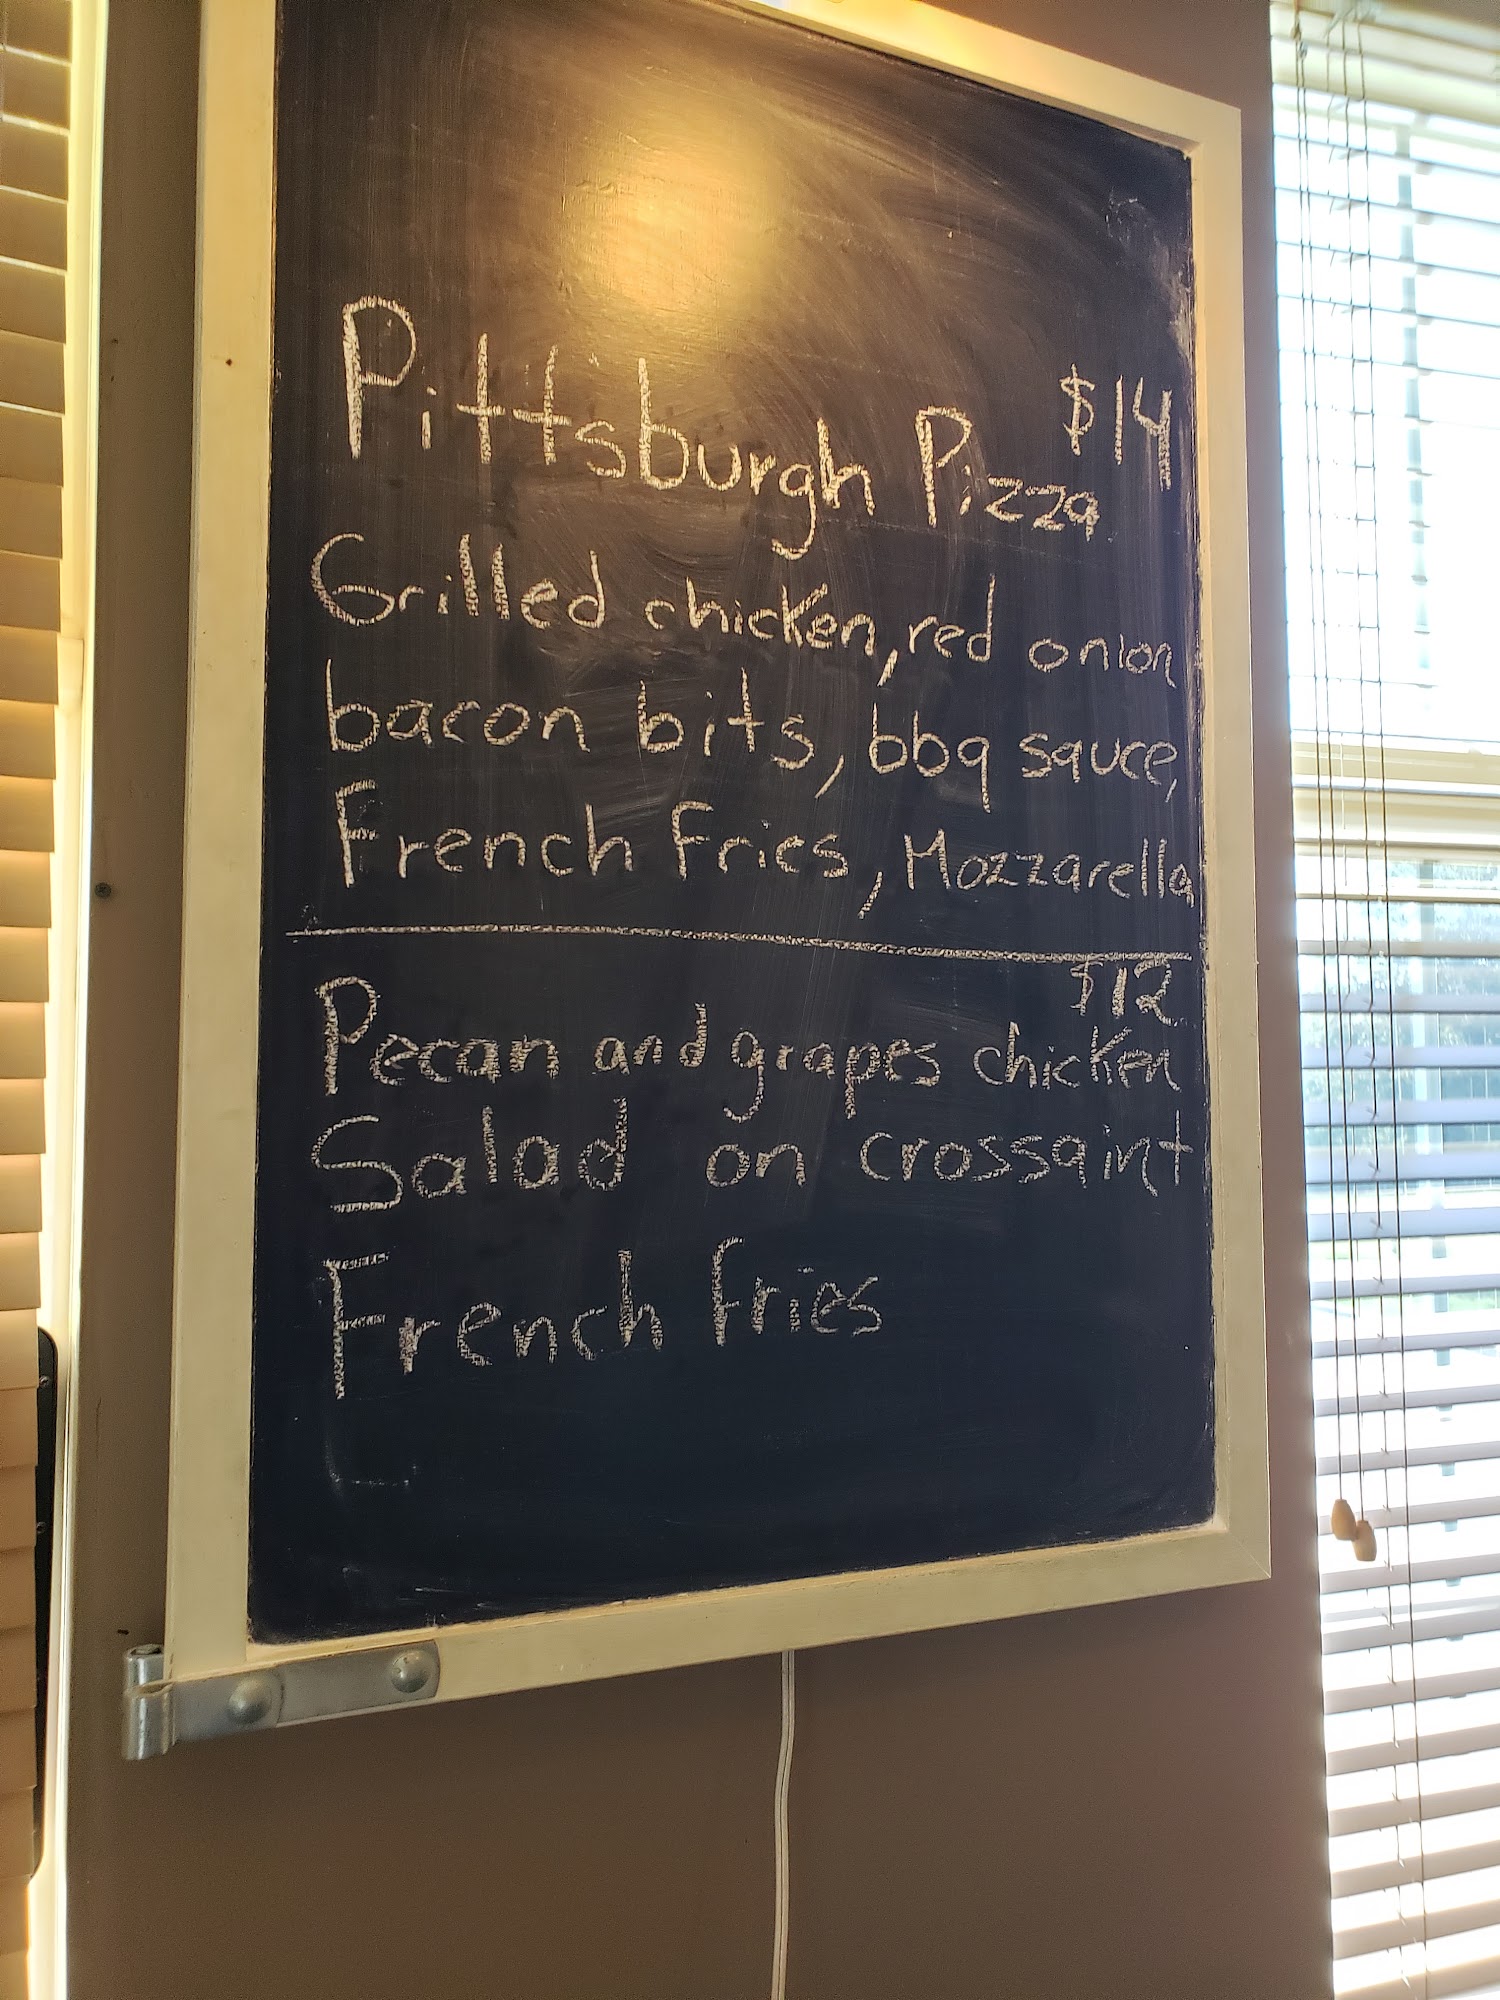 Pittsburgh Pizza $14
Grilled chicken, red onion
bacon bits, bbq sauce,
French fries, Mozzarella
$12
Pecan and grapes chicken
Salad on crossaint
French fries